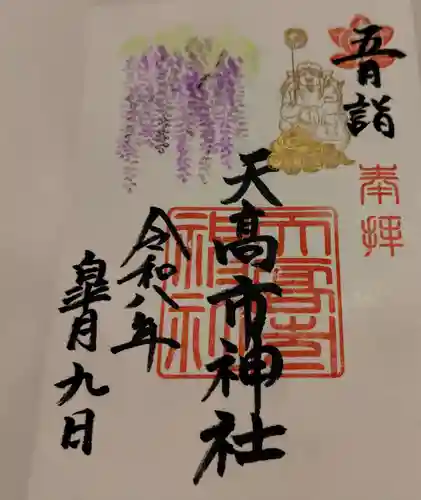 五月詣
奉拝
天高市神社
天高市神社
令和八年
皐月九日